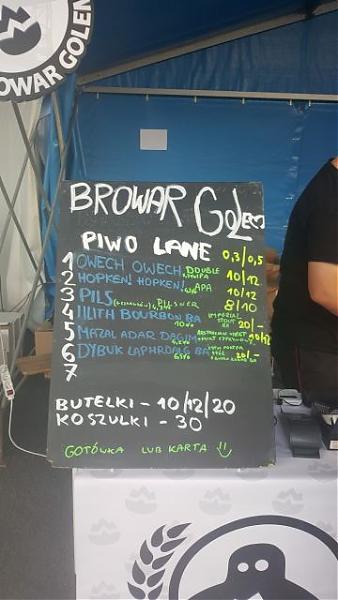 BROWAR GOLEM
BROWAR GOLEM
PIWO LANE 0,3/0,5
1 OWECH OWECH DOUBLE 10/12
2 HOPKEN! HOPKEN! APA 10/12
3 PILS PILSNER 8/10
4 LILITH BOURBON BA IMPERIAL STOUT BA 20/-
5 MAZAL ADAR DAGIM
6 DYBUK LAPHROAIG BA 20/-
7
BUTELKI - 10/12/20
KOSZULKI - 30
GOTÓWKA LUB KARTA